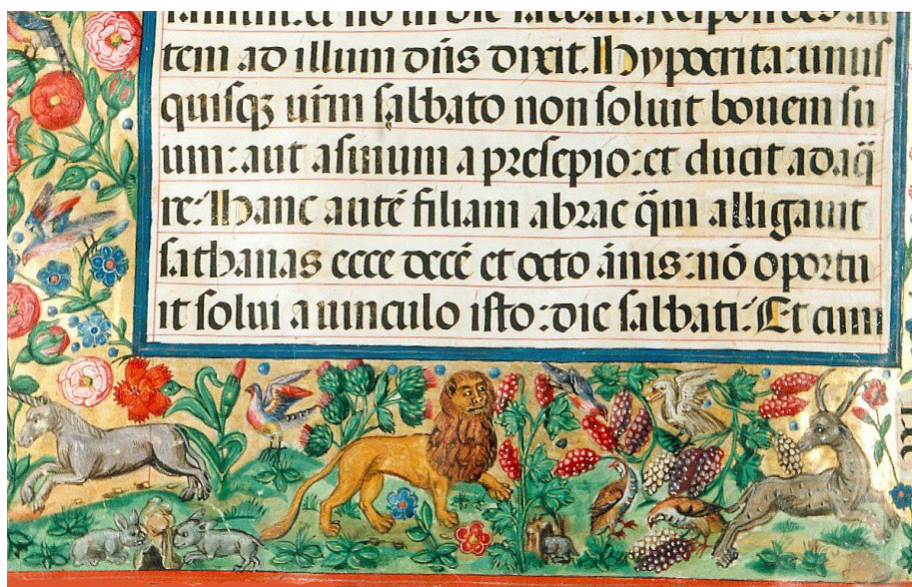 tem ad illum dn̄s dixit. Hypocrita: unus
quisq; ur̄m sabbato non soluit bouem su
um: aut asinum a presepio: et ducit adaq̄
re: Hanc autē filiam abrae q̄m alligauit
sathanas ecce decē et octo ānis: nō oportu
it solui a uinculo isto: die sabbati: Et cum